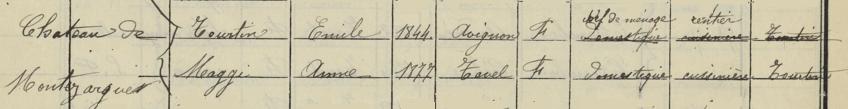 Chateau de Tourtin Emile 1844 Avignon F chef de ménage rentier
domestique cuisinière Tourtin
Montezargues Maggi Anne 1877 Tavel F domestique cuisinière Tourtin